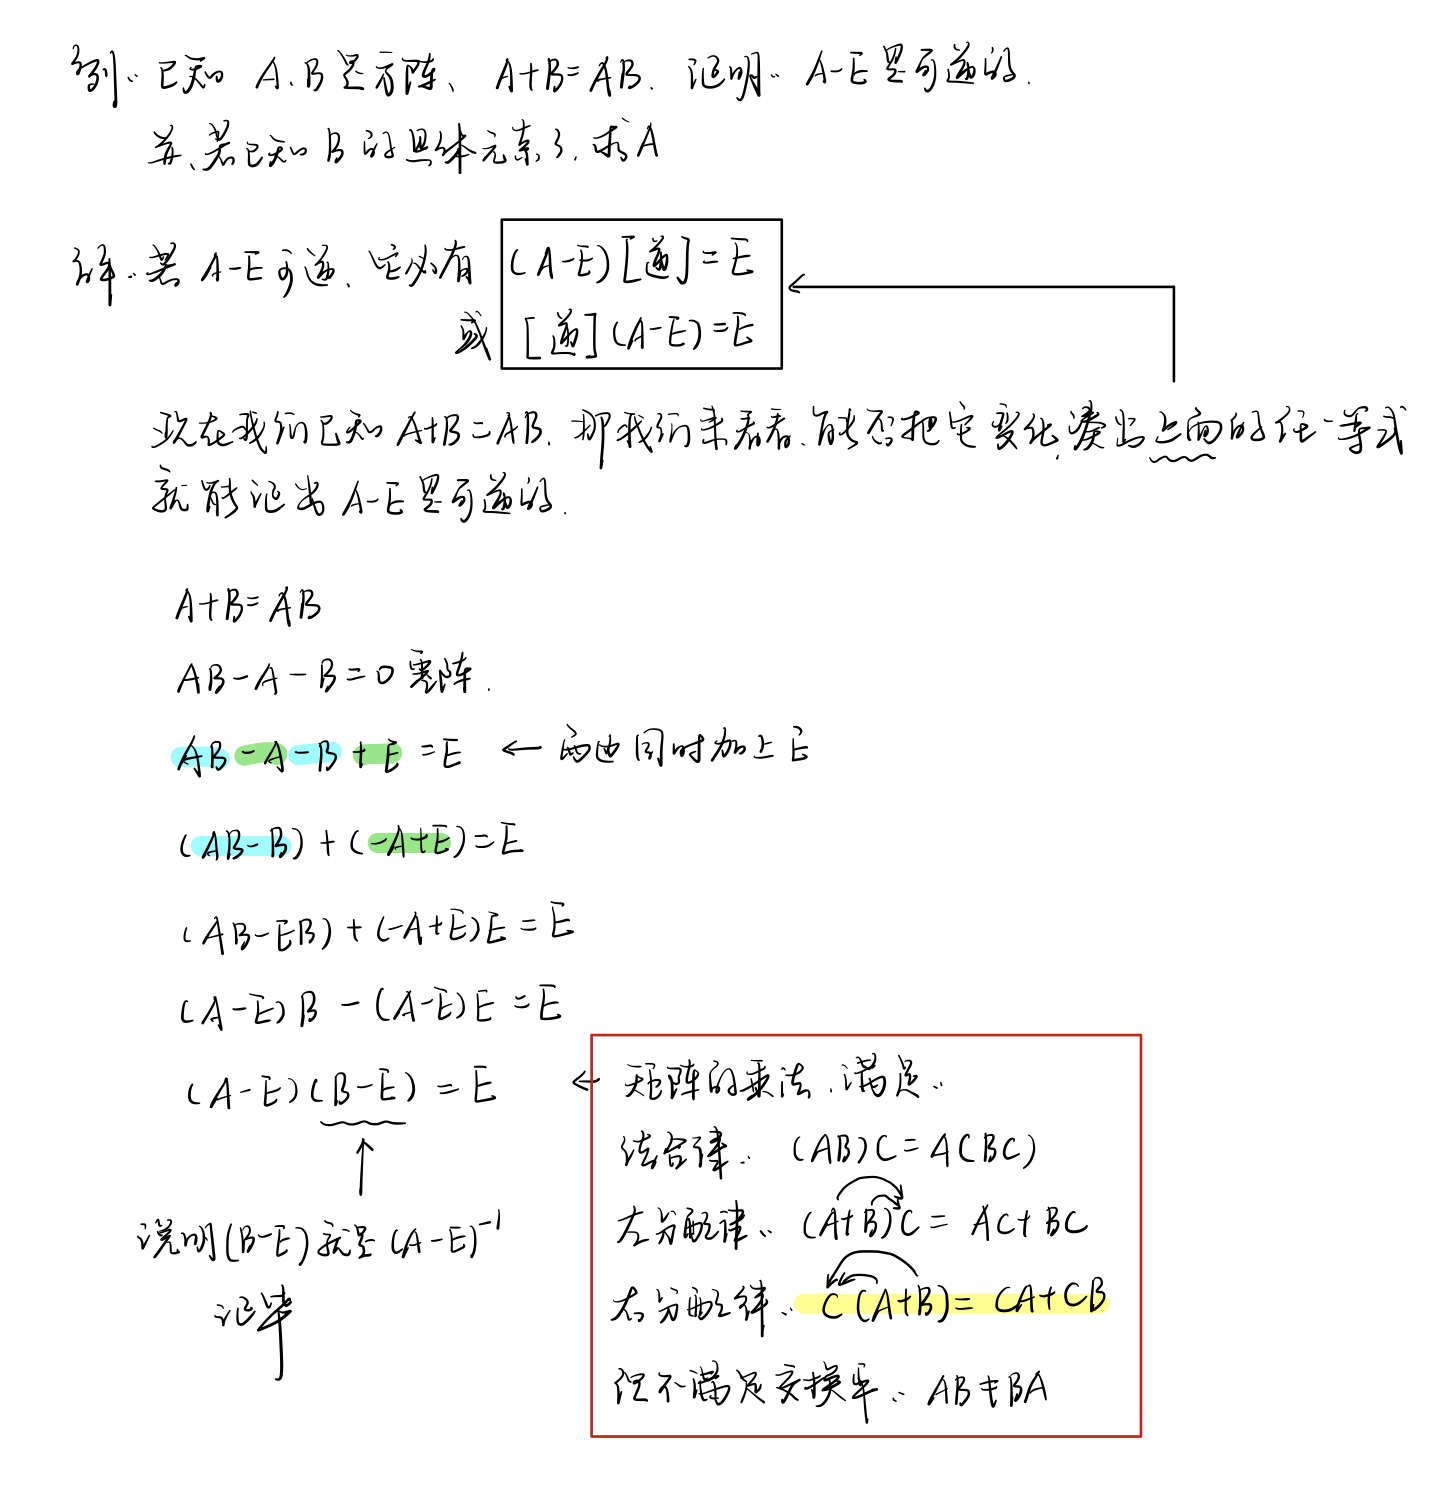 例:已知 A、B是方阵、A+B=AB. 证明: A-E是可逆的.
并、若已知B的具体元素了,求A
解:若 A-E可逆、它必有 (A-E)[逆]=E
或 [逆](A-E)=E
现在我们已知A+B=AB. 那我们来看看、能否把它变化,凑出上面的任一等式
就能证出 A-E是可逆的.
A+B=AB
AB-A-B=0 零阵.
AB-A-B+E=E ← 两边同时加上E
(AB-B)+(-A+E)=E
(AB-EB)+(-A+E)E=E
(A-E)B-(A-E)E=E
(A-E)(B-E)=E ← 矩阵的乘法,满足:
结合律: (AB)C=A(BC)
左分配律: (A+B)C=AC+BC
右分配律: C(A+B)=CA+CB
但不满足交换率: AB≠BA
↑
说明(B-E)就是(A-E)⁻¹
证毕